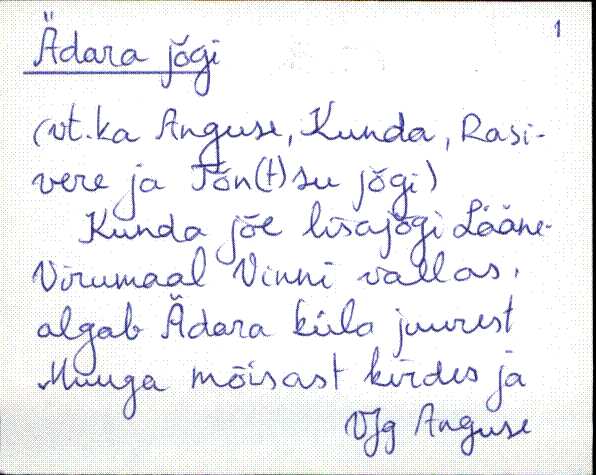 1
Ädara jõgi
(vt. ka Anguse, Kunda, Rasi-
vere ja Tõn(t)su jõgi)
Kunda jõe lisajõgi Lääne-
Virumaal Vinni vallas,
algab Ädara küla juurest
Muuga mõisast kirdes ja
VJg Anguse